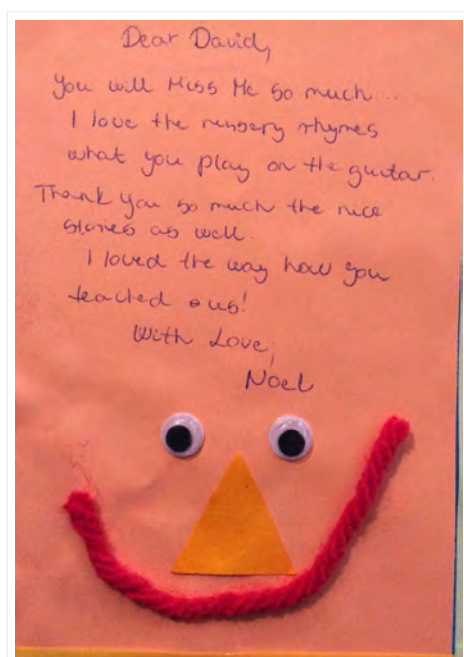 Dear David,
You will Miss Me so much...
I love the nursery rhymes
what you play on the guitar.
Thank you so much the nice
stories as well.
I loved the way how you
teached us!
With Love,
Noel